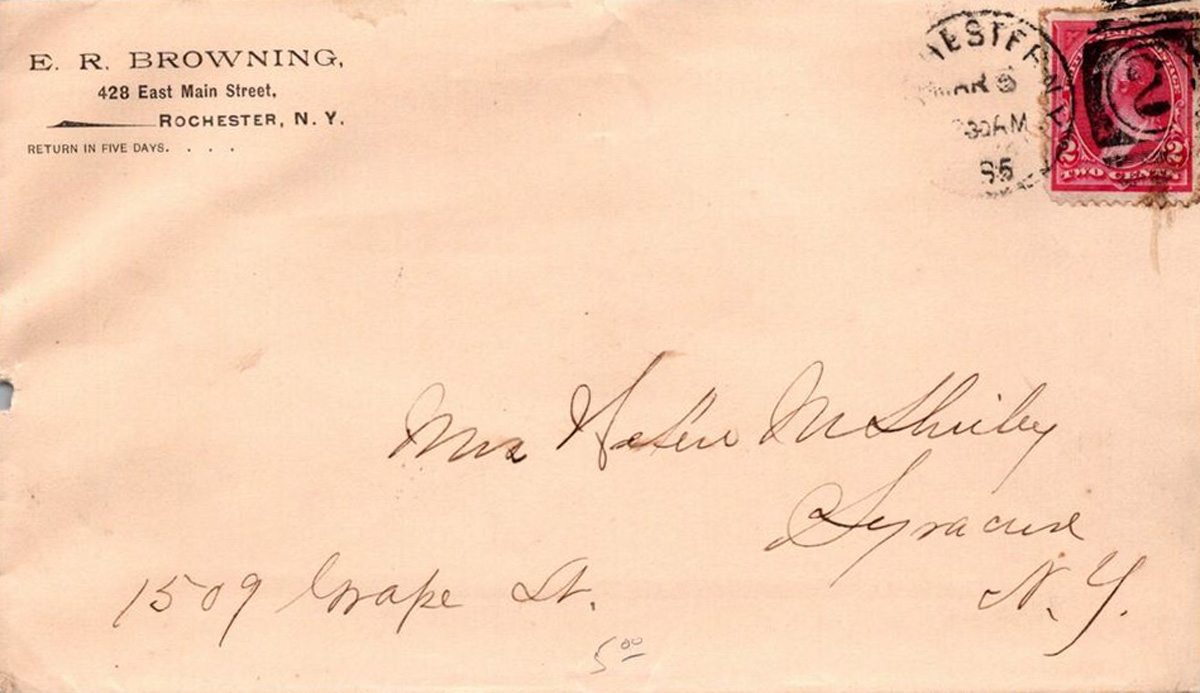 E. R. BROWNING,
428 East Main Street,
ROCHESTER, N. Y.
RETURN IN FIVE DAYS. . . .
HESTER, N.Y.
MAR 6
30AM
95
2
2 2
TWO CENTS
Mrs Helen M Shirley
Syracuse
N. Y.
1509 Grape St.
5.00